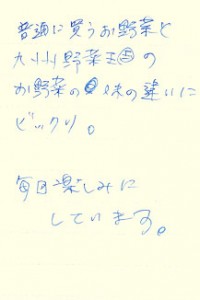 普通に買うお野菜と
九州野菜王国の
お野菜の味の違いに
ビックリ。
毎日楽しみに
しています。